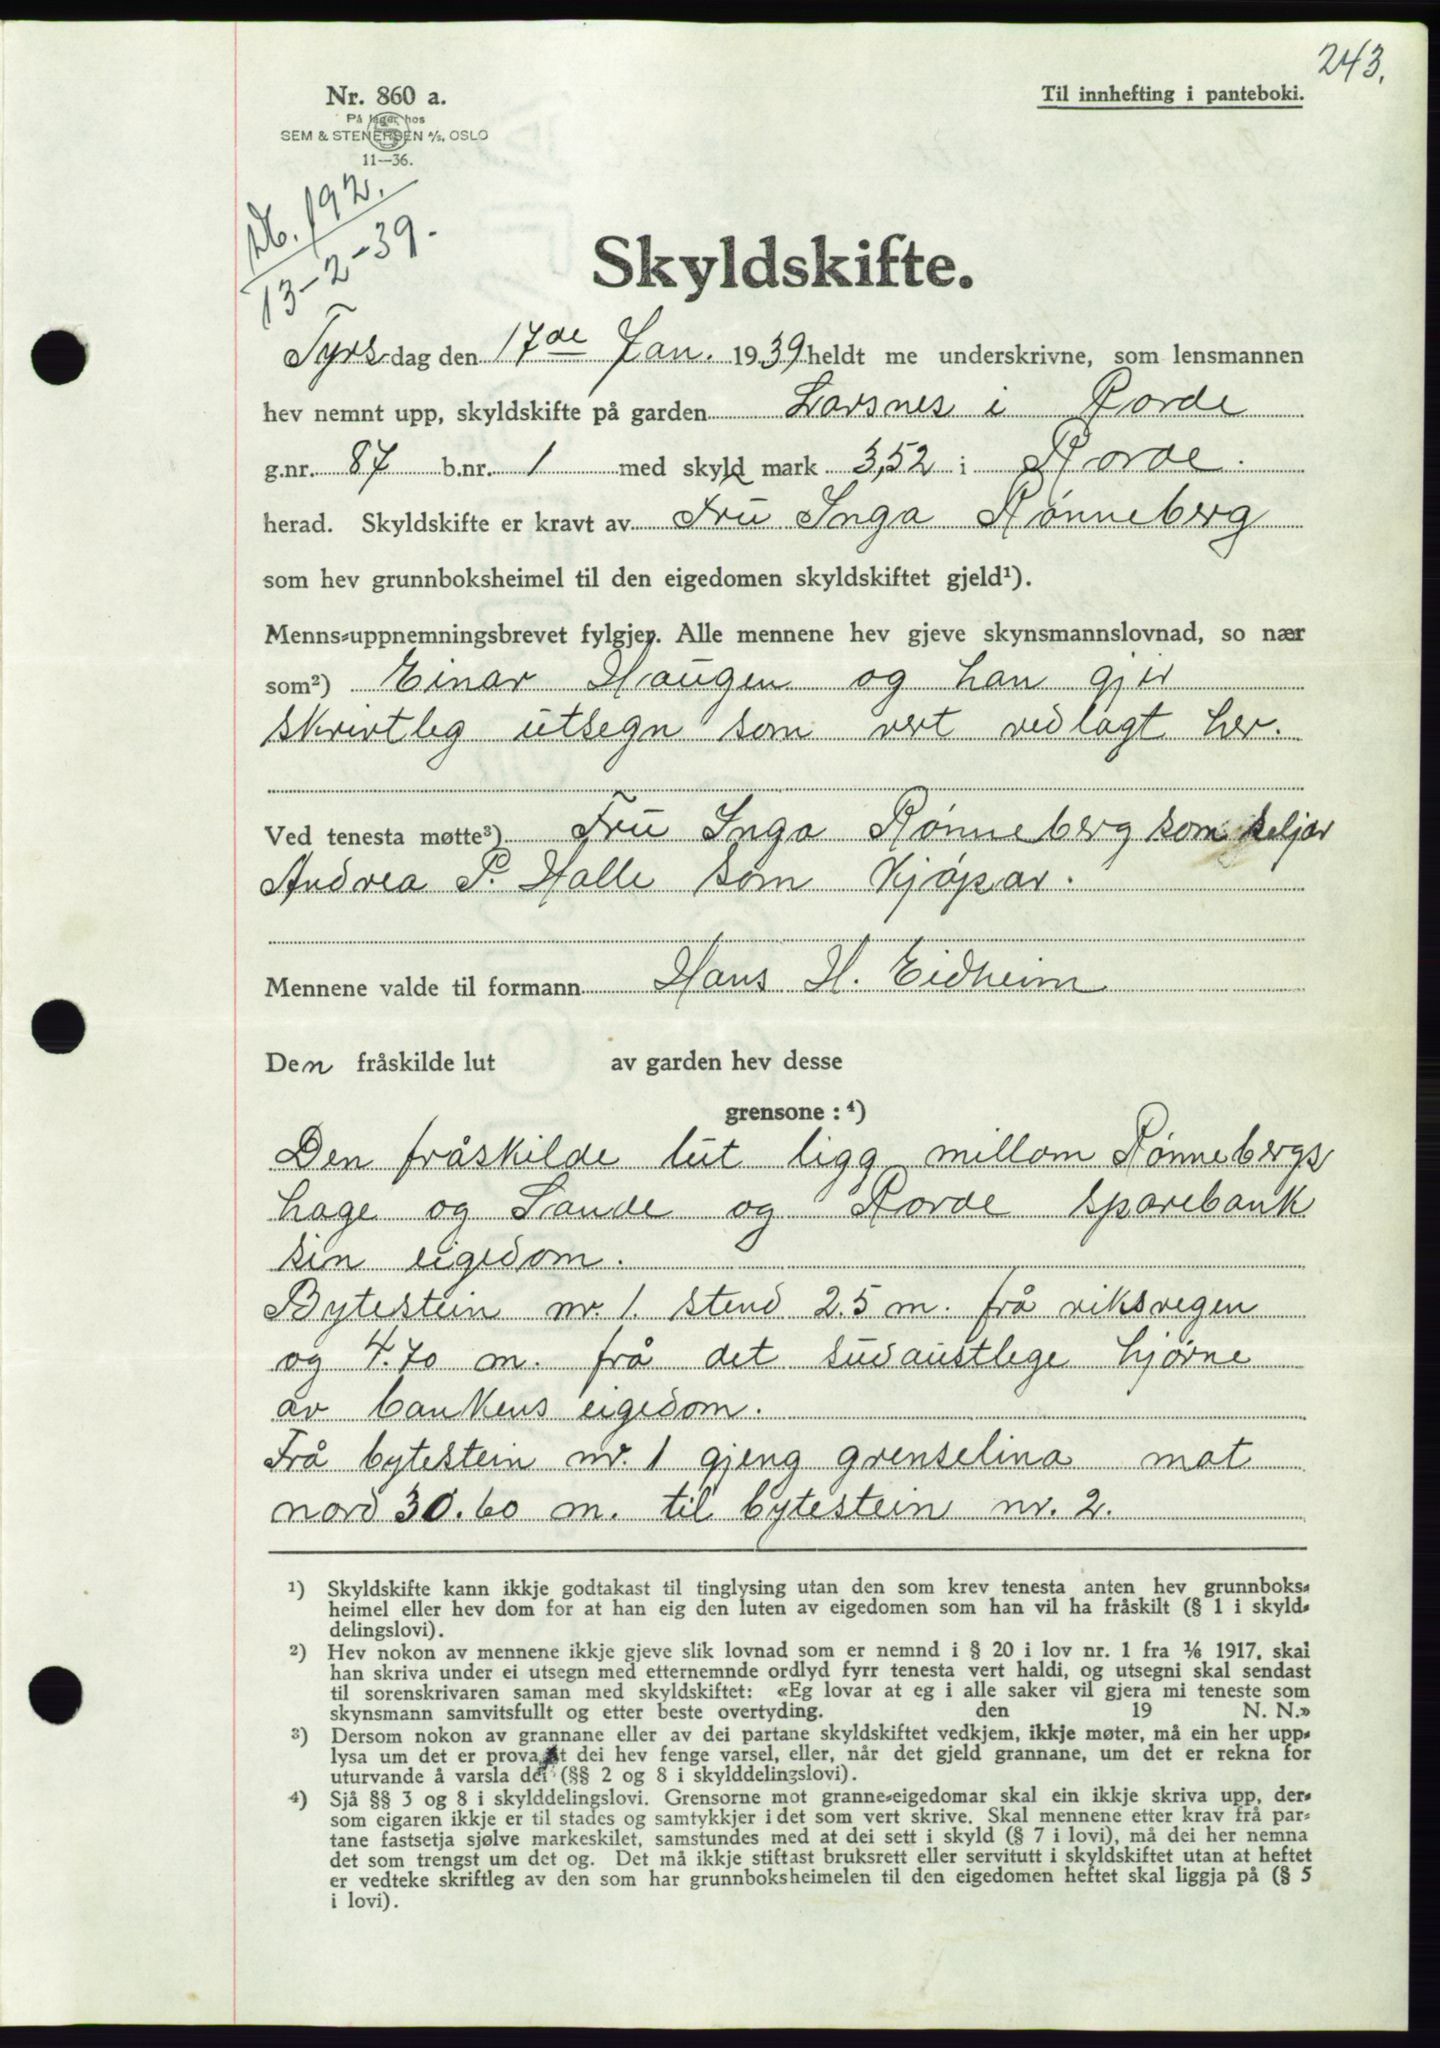 243.
Nr. 860 a.
Til innhefting i panteboki.
På lager hos
SEM & STENERSEN A/S, OSLO
11—36.
Db. 192.
13-2-39.
Skyldskifte.
Tyrsdag den 17de Jan. 1939 heldt me underskrivne, som lensmannen
hev nemnt upp, skyldskifte på garden Larsnes i Rovde
g.nr. 87 b.nr. 1 med skyld mark 3,52 i Rovde.
herad. Skyldskifte er kravt av Fru Inga Rønneberg
som hev grunnboksheimel til den eigedomen skyldskiftet gjeld¹).
Menns-uppnemningsbrevet fylgjer. Alle mennene hev gjeve skynsmannslovnad, so nær
som²) Einar Haugen og han gjev
skrivtleg utsegn som vert vedlagt her.
Ved tenesta møtte³) Fru Inga Rønneberg som seljar
Andrea P. Halle som kjøpar.
Mennene valde til formann Hans H. Eidheim
Den fråskilde lut av garden hev desse
grensone : ⁴)
Den fråskilde lut ligg millom Rønnebergs
hage og Sande og Rovde sparebank
sin eigedom.
Bytestein nr. 1. stend 2.5 m. frå riksvegen
og 4.70 m. frå det sudaustlege hjørne
av bankens eigedom.
Frå bytestein nr. 1 gjeng grenselina mot
nord 30.60 m. til bytestein nr. 2.
¹) Skyldskifte kann ikkje godtakast til tinglysing utan den som krev tenesta anten hev grunnboks-
heimel eller hev dom for at han eig den luten av eigedomen som han vil ha fråskilt (§ 1 i skyld-
delingslovi).
²) Hev nokon av mennene ikkje gjeve slik lovnad som er nemnd i § 20 i lov nr. 1 fra 1/6 1917, skal
han skriva under ei utsegn med etternemnde ordlyd fyrr tenesta vert haldi, og utsegni skal sendast
til sorenskrivaren saman med skyldskiftet: «Eg lovar at eg i alle saker vil gjera mi teneste som
skynsmann samvitsfullt og etter beste overtyding. den 19 N. N.»
³) Dersom nokon av grannane eller av dei partane skyldskiftet vedkjem, ikkje møter, må ein her upp-
lysa um det er prova at dei hev fenge varsel, eller, når det gjeld grannane, um det er rekna for
uturvande å varsla dei (§§ 2 og 8 i skylddelingslovi).
⁴) Sjå §§ 3 og 8 i skylddelingslovi. Grensorne mot granne-eigedomar skal ein ikkje skriva upp, der-
som eigaren ikkje er til stades og samtykkjer i det som vert skrive. Skal mennene etter krav frå par-
tane fastsetja sjølve markeskilet, samstundes med at dei sett i skyld (§ 7 i lovi), må dei her nemna
det som trengst um det og. Det må ikkje stiftast bruksrett eller servitutt i skyldskiftet utan at heftet
er vedteke skriftleg av den som har grunnboksheimelen til den eigedomen heftet skal liggja på (§ 5
i lovi).